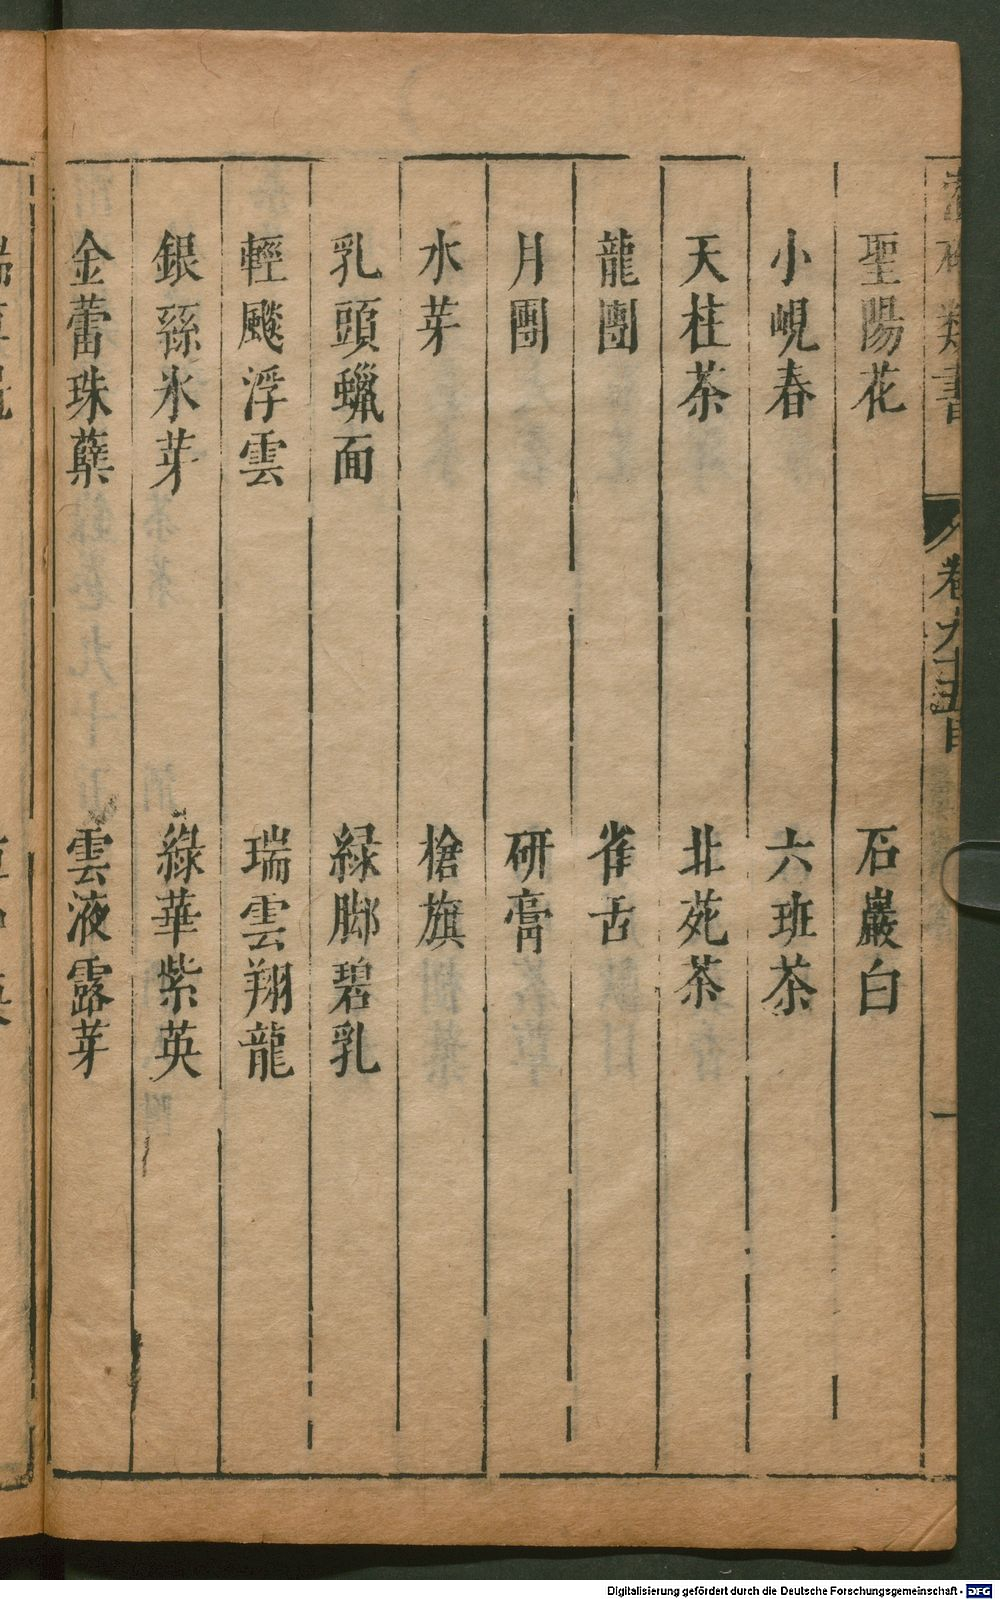 類書 卷九十五目 一
聖陽花 石巖白
小峴春 六班茶
天柱茶 北苑茶
龍團 雀舌
月團 研膏
水芽 槍旗
乳頭蠟面 緑脚碧乳
輕飈浮雲 瑞雲翔龍
銀絲氷芽 綠華紫英
金蕾珠蘖 雲液露芽
Digitalisierung gefördert durch die Deutsche Forschungsgemeinschaft - DFG